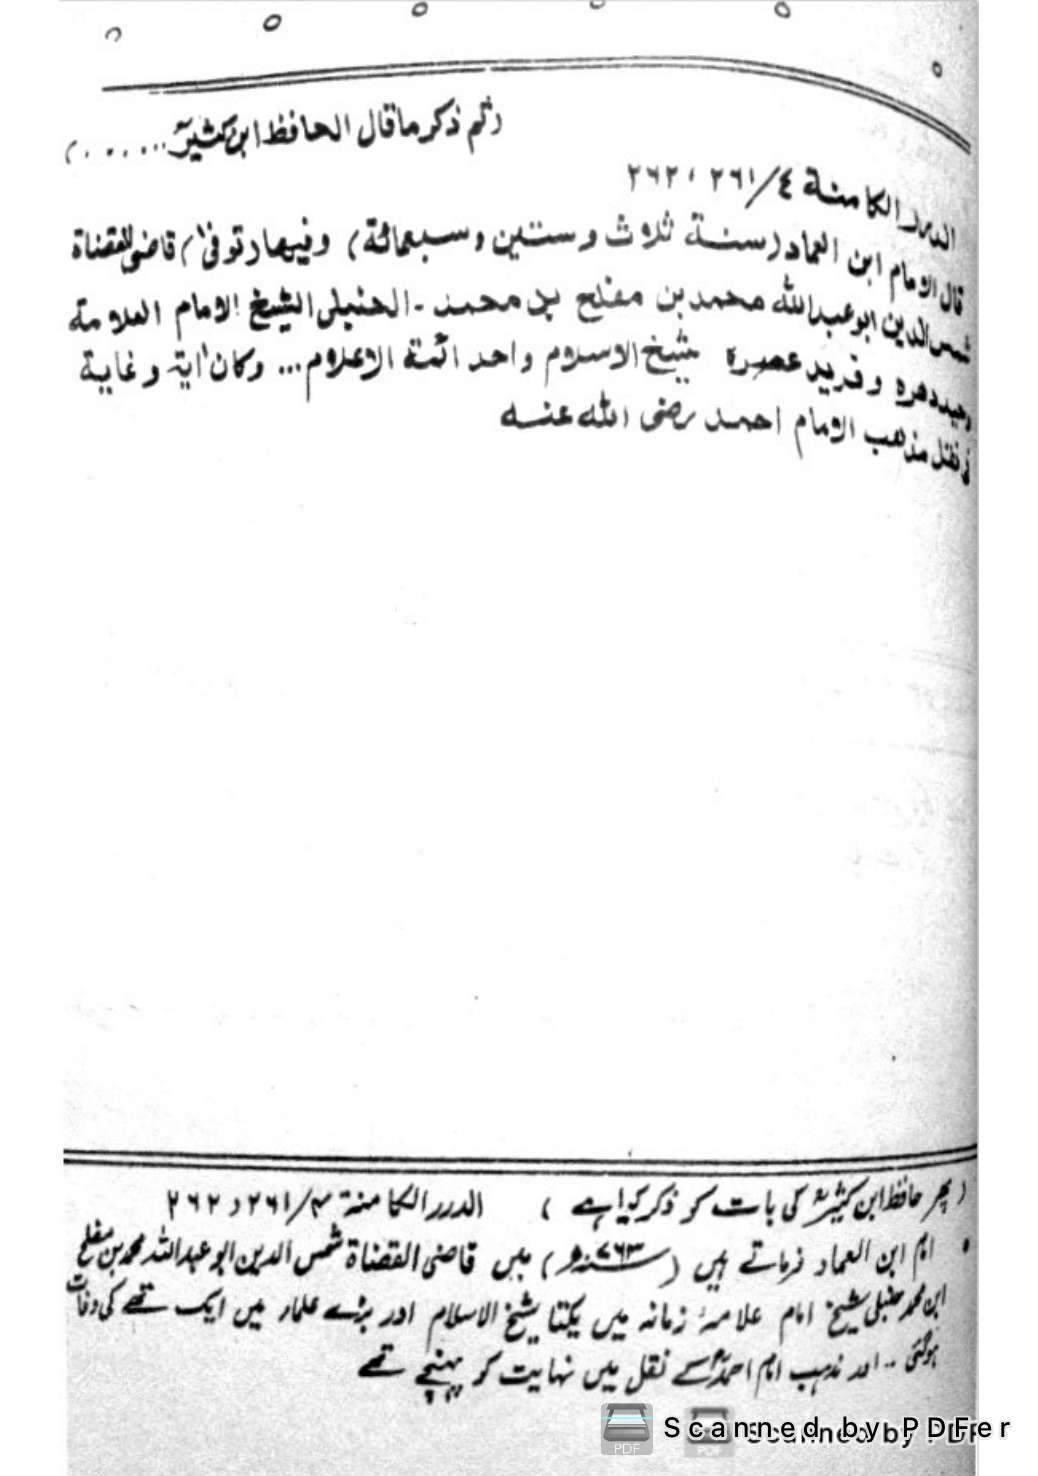 (ثم ذكر ما قال الحافظ ابن كثير......)
الدرر الكامنة ٤/٢٦١، ٢٦٢
قال الامام ابن العماد (سنة ثلاث وستين وسبعمائة) وفيها (توفى) قاضى القضاة
شمس الدين ابو عبد الله محمد بن مفلح بن محمد - الحنبلى الشيخ الامام العلامة
وحيد دهره وفريد عصره شيخ الاسلام واحد ائمة الاعلام... وكان اية وغاية
فى نقل مذهب الامام احمد رضى الله عنه
(پھر حافظ ابن کثیرؒ کی بات کو ذکر کیا ہے) الدرر الكامنة ٤/٢٦١ و ٢٦٢
• امام ابن العماد فرماتے ہیں (سنہ ٧٦٣ھ) میں قاضی القضاة شمس الدین ابو عبداللہ محمد بن مفلح
ابن محمد حنبلی شیخ امام علامہ زمانہ میں یکتا شیخ الاسلام اور بڑے علماء میں ایک تھے کی وفات
ہوگئی .. اور مذہب امام احمدؒ کے نقل میں نہایت کو پہنچے تھے
Scanned by PDFer
Scanned by PDF